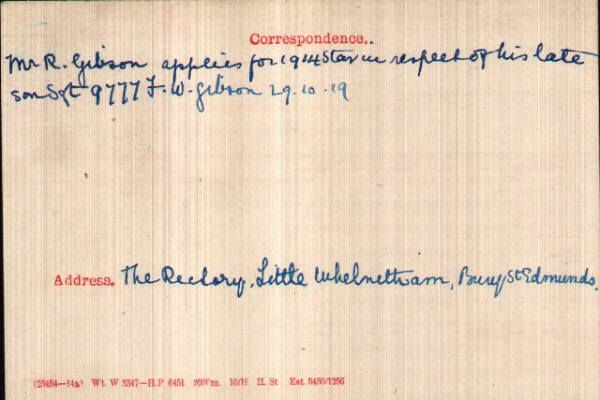 Correspondence.
Mr R. Gibson applies for 1914 Star in respect of his late
son Sgt 9777 F. W. Gibson 29.10.19
Address. The Rectory, Little Whelnetham, Bury St Edmunds.
(25454—14a) Wt. W 3347—H.P 6451 2000m. 10/18 H. St Est. 5450/1256